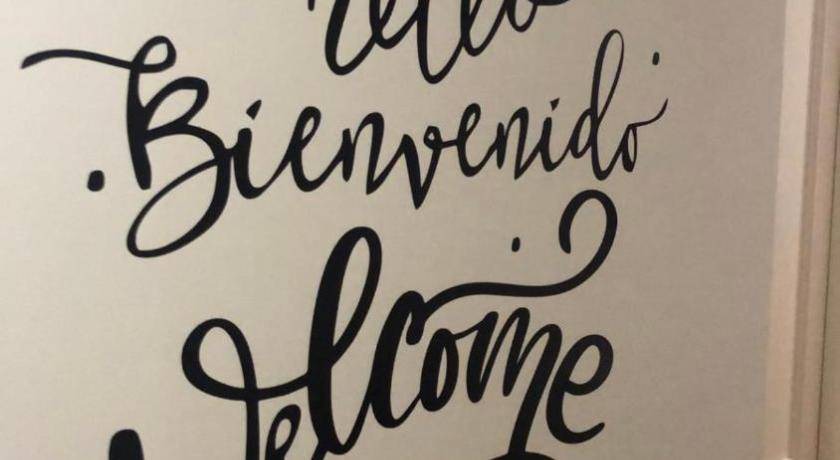 Bienvenido
Welcome